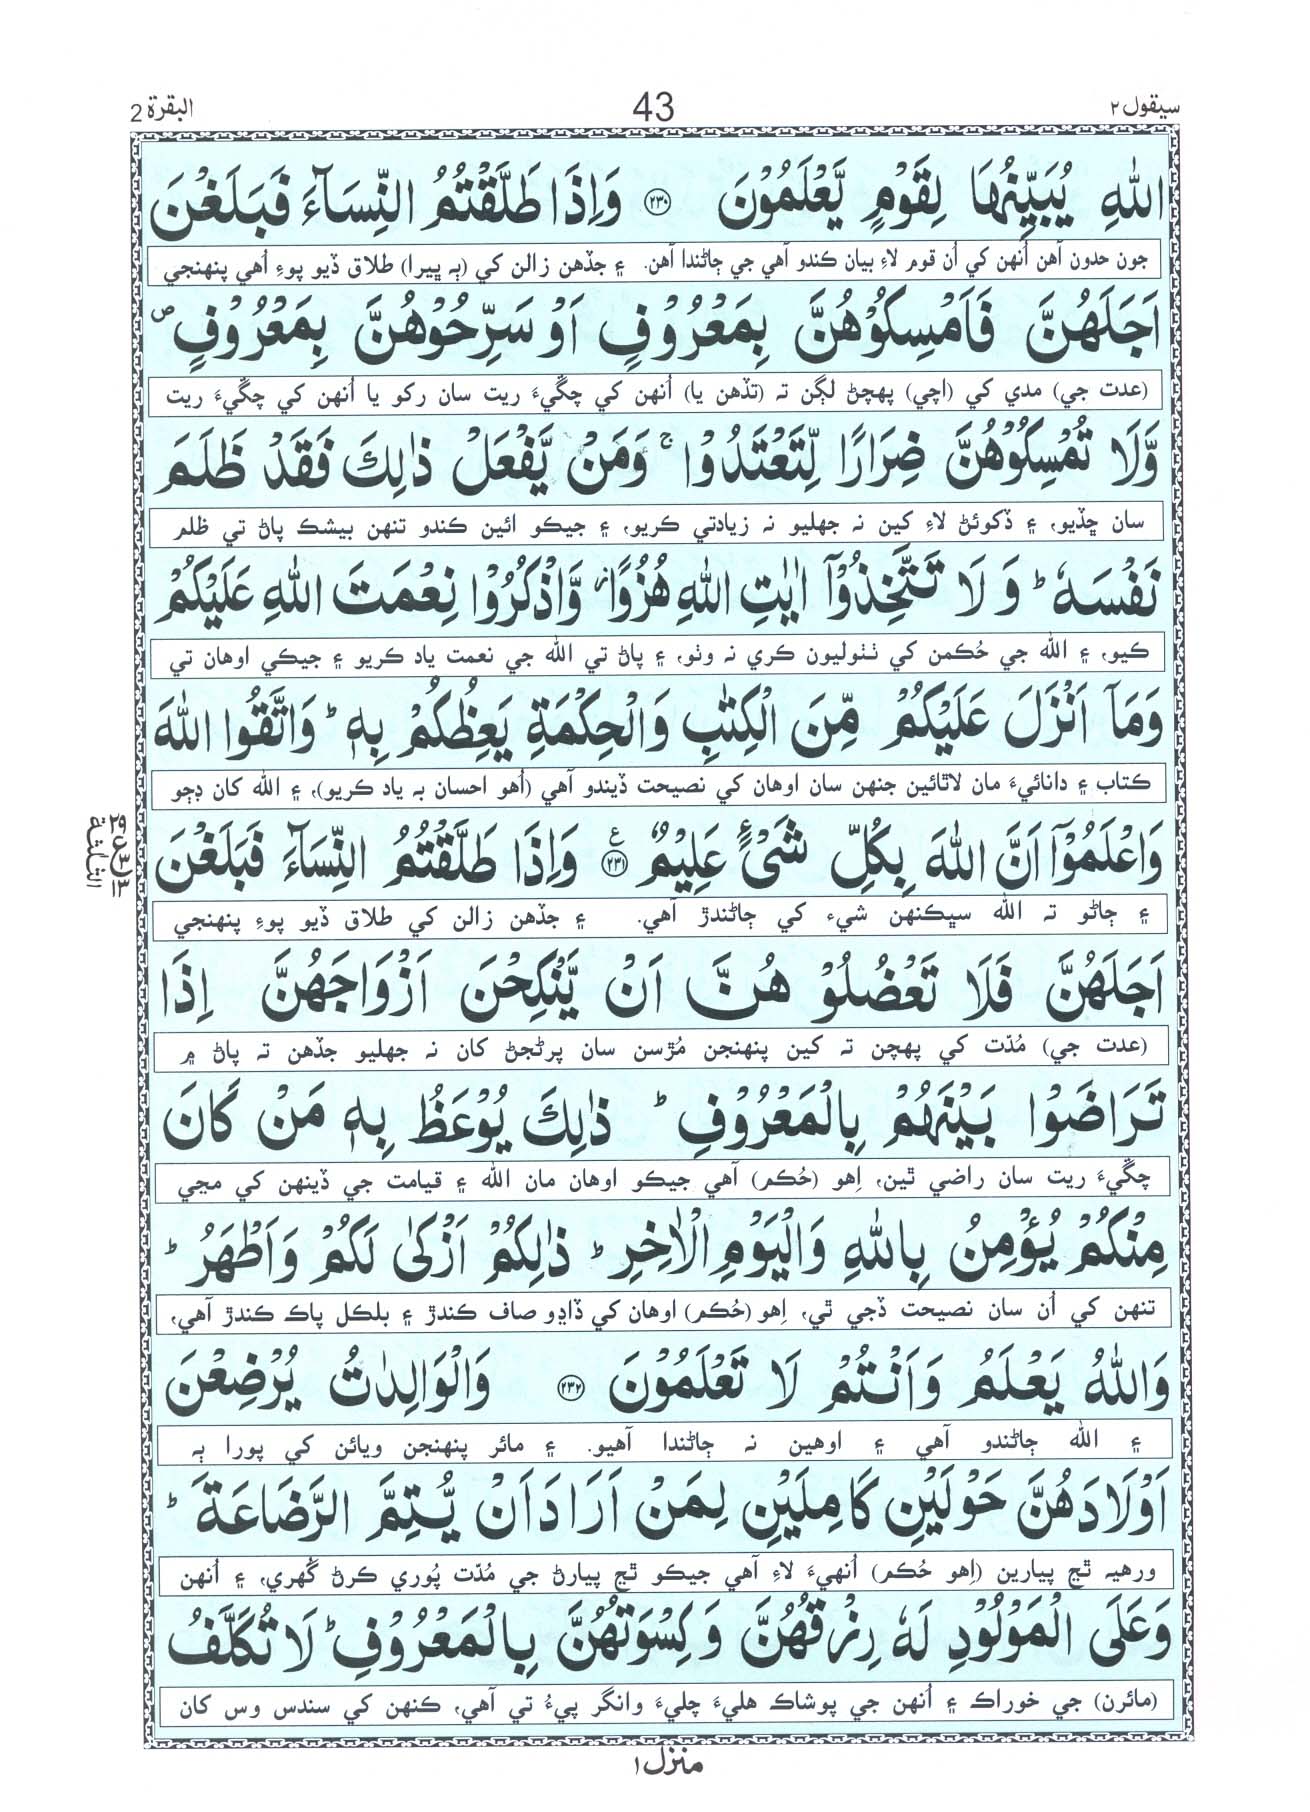 سيقول ٢
43
البقرة 2
اللّٰهِ يُبَيِّنُهَا لِقَوْمٍ يَّعْلَمُوْنَ ﴿٢٣٠﴾ وَاِذَا طَلَّقْتُمُ النِّسَآءَ فَبَلَغْنَ
جون حدون آهن اُنهن کي اُن قوم لاءِ بيان ڪندو آهي جي ڄاڻندا آهن. ۽ جڏهن زالن کي (ٻہ ڀيرا) طلاق ڏيو پوءِ اُهي پنهنجي
اَجَلَهُنَّ فَاَمْسِكُوْهُنَّ بِمَعْرُوْفٍ اَوْ سَرِّحُوْهُنَّ بِمَعْرُوْفٍ ۪
(عدت جي) مدي کي (اچي) پهچڻ لڳن تہ (تڏهن يا) اُنهن کي چڱيءَ ريت سان رکو يا اُنهن کي چڱيءَ ريت
وَّلَا تُمْسِكُوْهُنَّ ضِرَارًا لِّتَعْتَدُوْا ۚ وَمَنْ يَّفْعَلْ ذٰلِكَ فَقَدْ ظَلَمَ
سان ڇڏيو، ۽ ڏکوئڻ لاءِ کين نہ جهليو نہ زيادتي ڪريو، ۽ جيڪو ائين ڪندو تنهن بيشڪ پاڻ تي ظلم
نَفْسَهٗ ؕ وَ لَا تَتَّخِذُوْٓا اٰيٰتِ اللّٰهِ هُزُوًا ؗ وَّاذْكُرُوْا نِعْمَتَ اللّٰهِ عَلَيْكُمْ
ڪيو، ۽ الله جي حُڪمن کي ٺٺوليون ڪري نہ وٺو، ۽ پاڻ تي الله جي نعمت ياد ڪريو ۽ جيڪي اوهان تي
وَمَآ اَنْزَلَ عَلَيْكُمْ مِّنَ الْكِتٰبِ وَالْحِكْمَةِ يَعِظُكُمْ بِهٖ ؕ وَاتَّقُوا اللّٰهَ
ڪتاب ۽ دانائيءَ مان لاٿائين جنهن سان اوهان کي نصيحت ڏيندو آهي (اُهو احسان بہ ياد ڪريو)، ۽ الله کان ڊڄو
وَاعْلَمُوْٓا اَنَّ اللّٰهَ بِكُلِّ شَيْءٍ عَلِيْمٌ ﴿٢٣١﴾ ع وَاِذَا طَلَّقْتُمُ النِّسَآءَ فَبَلَغْنَ
۽ ڄاڻو تہ الله سڀڪنهن شيء کي ڄاڻندڙ آهي. ۽ جڏهن زالن کي طلاق ڏيو پوءِ پنهنجي
اَجَلَهُنَّ فَلَا تَعْضُلُوْ هُنَّ اَنْ يَّنْكِحْنَ اَزْوَاجَهُنَّ اِذَا
(عدت جي) مُدّت کي پهچن تہ کين پنهنجن مُڙسن سان پرڻجڻ کان نہ جهليو جڏهن تہ پاڻ ۾
تَرَاضَوْا بَيْنَهُمْ بِالْمَعْرُوْفِ ؕ ذٰلِكَ يُوْعَظُ بِهٖ مَنْ كَانَ
چڱيءَ ريت سان راضي ٿين، اِهو (حُڪم) آهي جيڪو اوهان مان الله ۽ قيامت جي ڏينهن کي مڃي
مِنْكُمْ يُؤْمِنُ بِاللّٰهِ وَالْيَوْمِ الْاٰخِرِ ؕ ذٰلِكُمْ اَزْكٰى لَكُمْ وَاَطْهَرُ ؕ
تنهن کي اُن سان نصيحت ڏجي ٿي، اِهو (حُڪم) اوهان کي ڏاڍو صاف ڪندڙ ۽ بلڪل پاڪ ڪندڙ آهي،
وَاللّٰهُ يَعْلَمُ وَاَنْتُمْ لَا تَعْلَمُوْنَ ﴿٢٣٢﴾ وَالْوَالِدٰتُ يُرْضِعْنَ
۽ الله ڄاڻندو آهي ۽ اوهين نہ ڄاڻندا آهيو. ۽ مائر پنهنجن ويائن کي پورا ٻہ
اَوْلَادَهُنَّ حَوْلَيْنِ كَامِلَيْنِ لِمَنْ اَرَادَ اَنْ يُّتِمَّ الرَّضَاعَةَ ؕ
ورهيہ ٿڃ پيارين (اِهو حُڪم) اُنهيءَ لاءِ آهي جيڪو ٿڃ پيارڻ جي مُدّت پُوري ڪرڻ گُهري، ۽ اُنهن
وَعَلَى الْمَوْلُوْدِ لَهٗ رِزْقُهُنَّ وَكِسْوَتُهُنَّ بِالْمَعْرُوْفِ ؕ لَا تُكَلَّفُ
(مائرن) جي خوراڪ ۽ اُنهن جي پوشاڪ هليءَ چليءَ وانگر پيءُ تي آهي، ڪنهن کي سندس وس کان
منزل ١